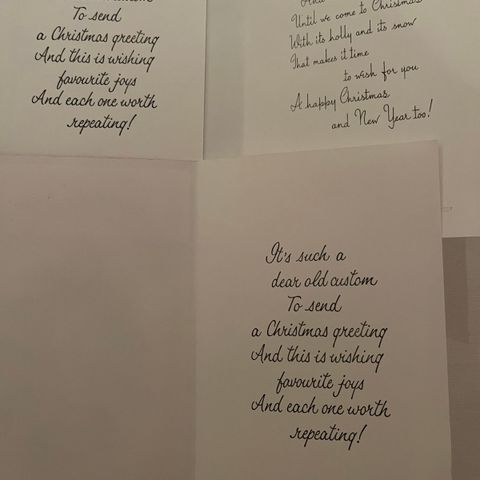 To send
a Christmas greeting
And this is wishing
favourite joys
And each one worth
repeating!
And
Until we come to Christmas
With its holly and its snow
That makes it time
to wish for you
A happy Christmas
and New Year too!
It's such a
dear old custom
To send
a Christmas greeting
And this is wishing
favourite joys
And each one worth
repeating!